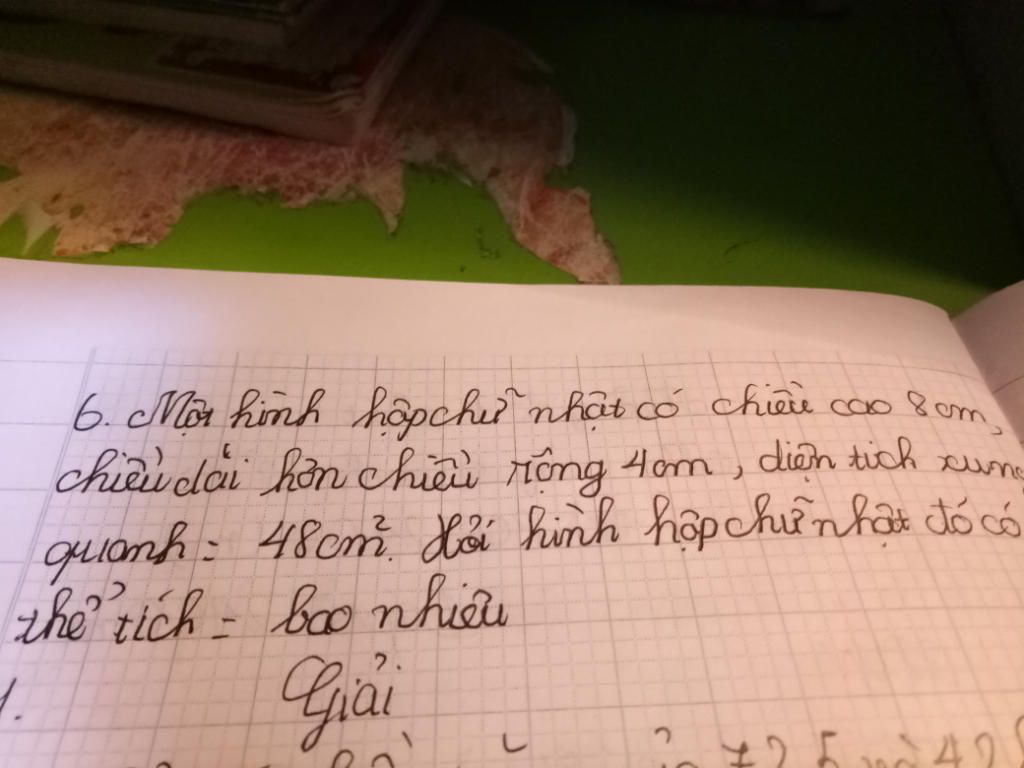 6. Một hình hộp chữ nhật có chiều cao 8cm,
chiều dài hơn chiều rộng 4cm, diện tích xung
quanh = 48cm². Hỏi hình hộp chữ nhật đó có
thể tích = bao nhiêu
Giải
1.